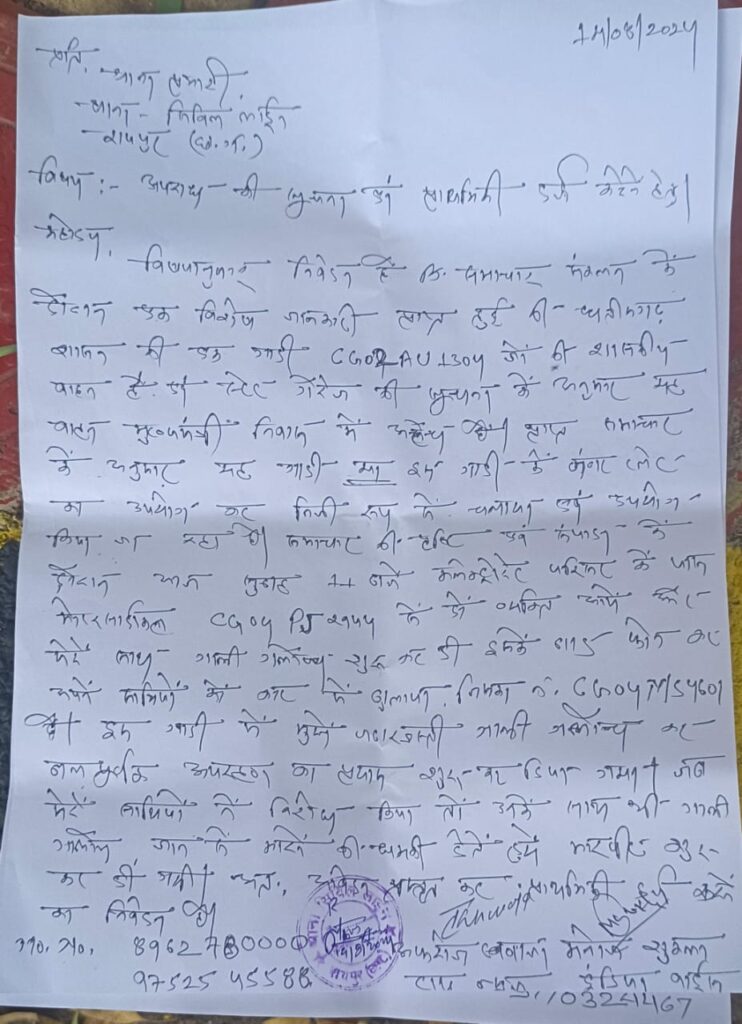 14/08/2024
प्रति,
थाना प्रभारी,
थाना - सिविल लाईन
रायपुर (छ.ग.)
विषय :- अपराध की सूचना एवं प्राथमिकी दर्ज करने हेतु।
महोदय,
विषयानुसार निवेदन है कि समाचार संकलन के
दौरान एक विशेष जानकारी प्राप्त हुई की छत्तीसगढ़
शासन की एक गाड़ी CG02 AU 1304 जो की शासकीय
वाहन है. स्टेट गैरेज की सूचना के अनुसार यह
वाहन मुख्यमंत्री निवास में है। प्राप्त समाचार
के अनुसार यह गाड़ी या इस गाड़ी के नंबर प्लेट
का उपयोग कर निजी रूप से चलाया एवं उपयोग
किया जा रहा है। समाचार की पुष्टि एवं के
दौरान आज सुबह 11 बजे कलेक्ट्रोरेट परिसर के पास
मोटरसाईकिल CG04 PJ में दो व्यक्ति आये और
मेरे साथ गाली गलौच्च शुरू कर दी इसके बाद फोन कर
अपने साथियों को कार से बुलाया. जिसका नं. CG04 MS4601
है। इस गाड़ी में मुझे जबरजस्ती गाली गलौच्च कर
बलपूर्वक अपहरण का प्रयास शुरू कर दिया गया। जब
मेरे साथियों ने विरोध किया तो उनके साथ भी गाली
गलौच जान से मारने की धमकी देते हुये मारपीट शुरू
कर दी गयी। अतः, आवेदन प्रस्तुत कर प्राथमिकी दर्ज करने
का निवेदन है।
मो. नं. 8962780000
मनोज शुक्ला
97525 45588
इंडिया